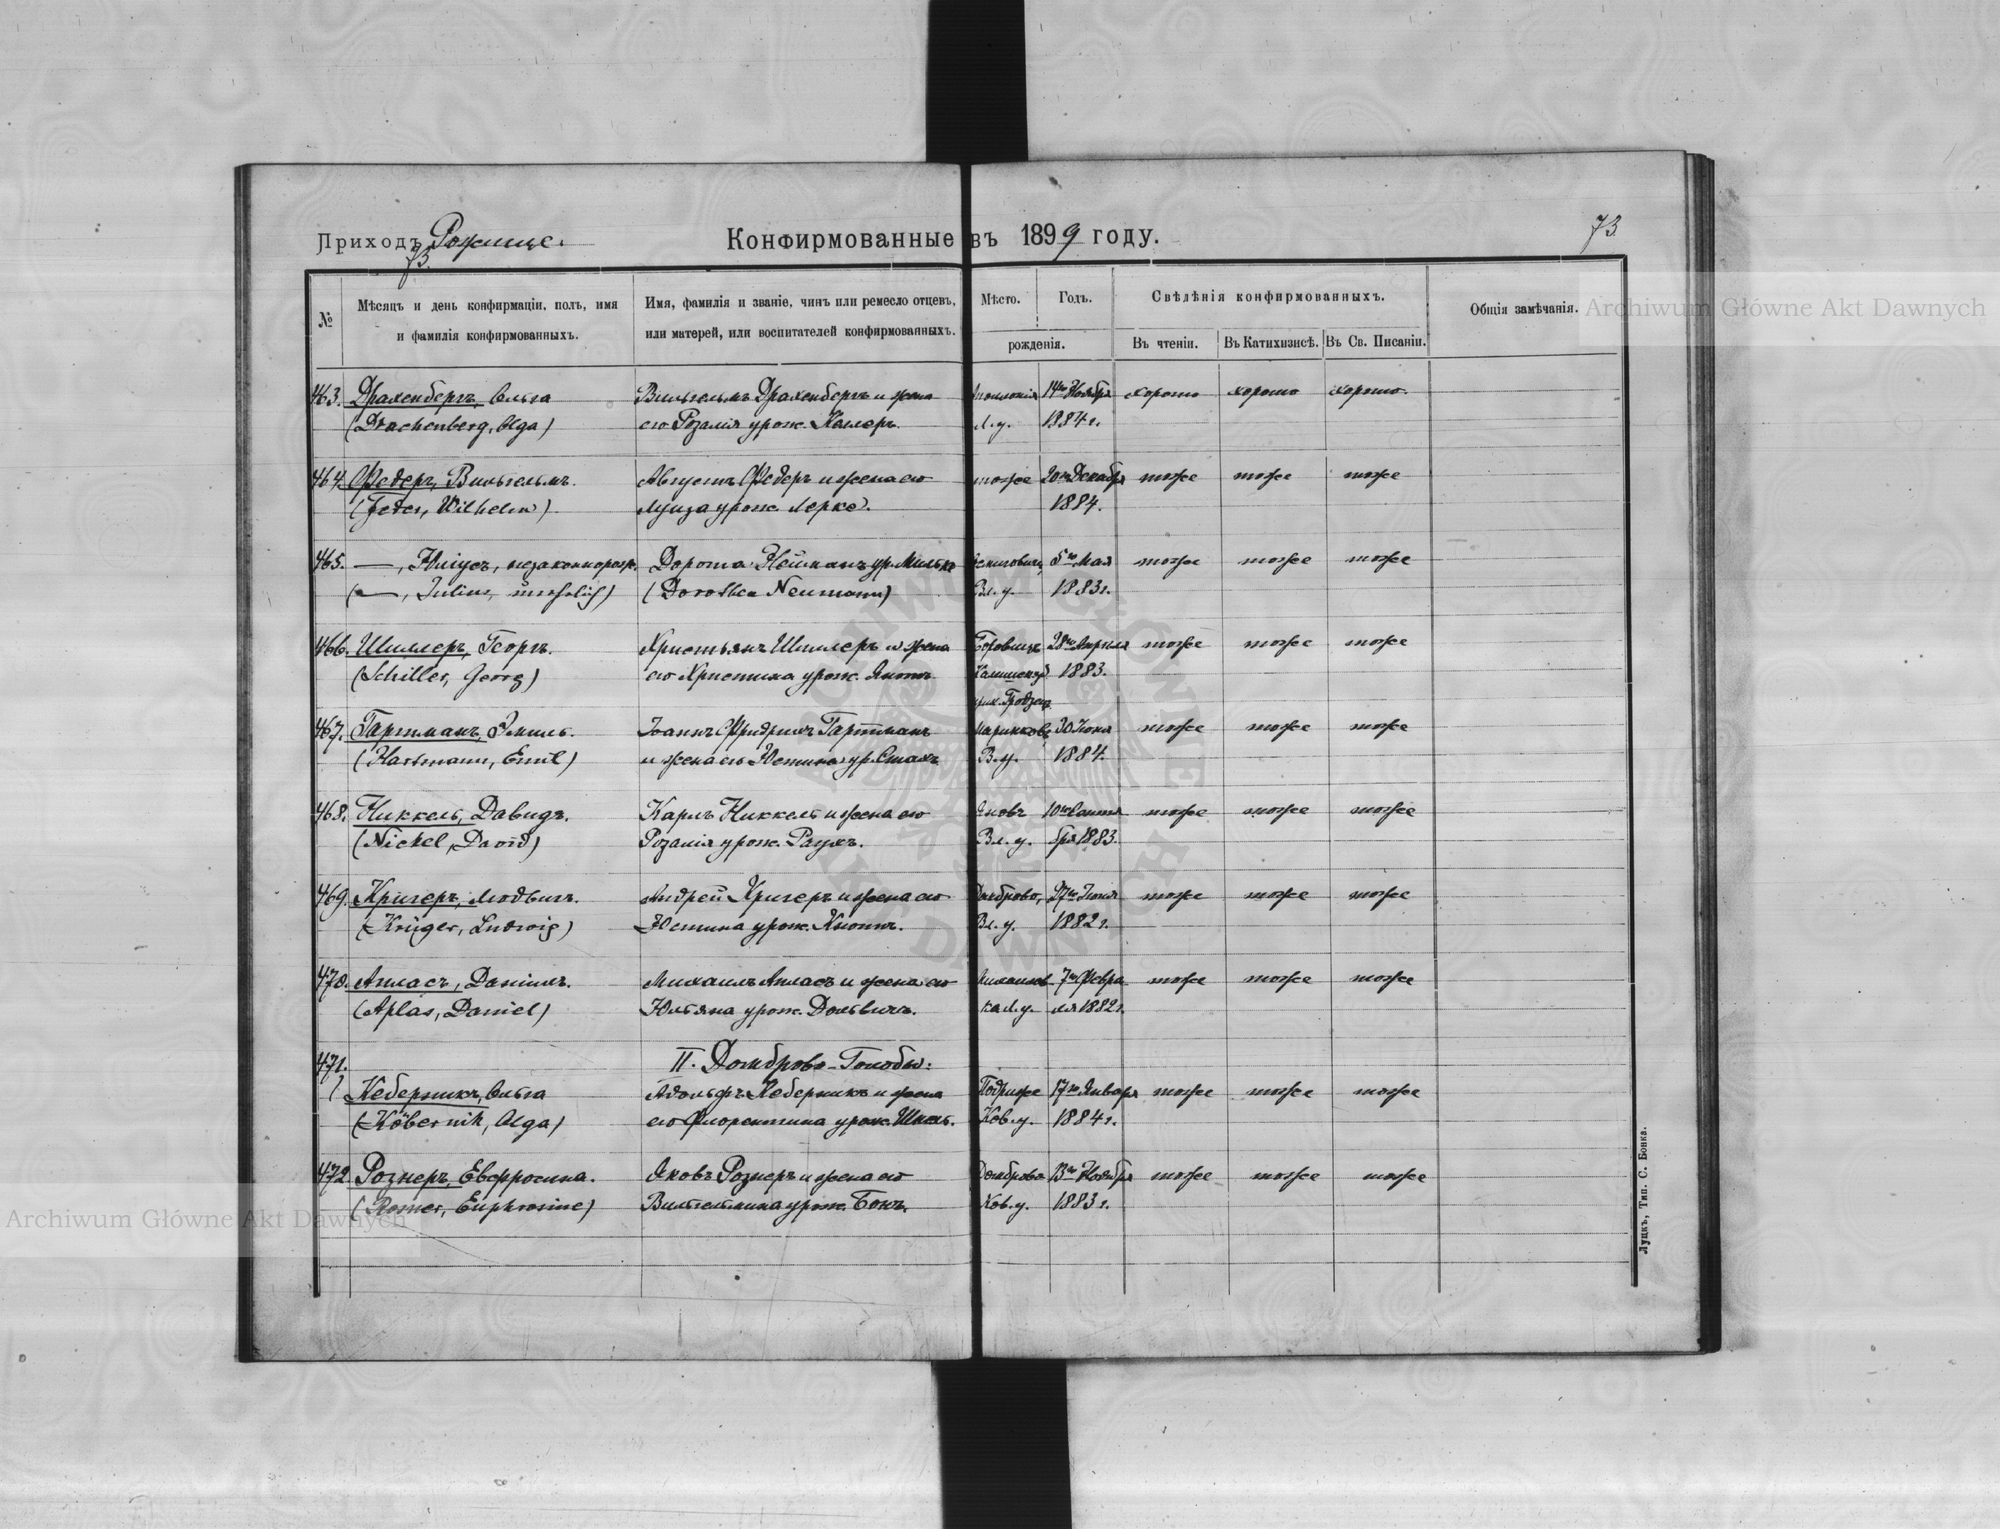 Приходъ Рожище.
Конфирмованные въ 1899 году.
73
73.
№
Мѣсяцъ и день конфирмаціи, полъ, имя
и фамилія конфирмованныхъ.
Имя, фамилія и званіе, чинъ или ремесло отцевъ,
или матерей, или воспитателей конфирмованныхъ.
Мѣсто.
Годъ.
рожденія.
Свѣдѣнія конфирмованныхъ.
Въ чтеніи.
Въ Катихизисѣ.
Въ Св. Писаніи.
Общія замѣчанія.
463. Драхенбергъ, Ольга Вильгельмъ Драхенбергъ и жена 14го Ноября хорошо хорошо хорошо.
(Drachenberg, Olga) его Розалія урож. Келлеръ. Л. у. 1884 г.
464. Федеръ, Вильгельмъ. Августъ Федеръ и жена его тоже 20го Декабря тоже тоже тоже
(Feder, Wilhelm) Луиза урож. Лерке. 1884.
465. —, Юліусъ, незаконнорожд. Дорота Нейманъ ур. Мильке 5го Мая тоже тоже тоже
(—, Julius, unehelich) (Dorothea Neumann) Вл. у. 1883 г.
466. Шиллеръ, Георгъ. Христьянъ Шиллеръ и жена 28го Апрѣля тоже тоже тоже
(Schiller, Georg) его Христина урож. 1883.
467. Гартманъ, Эмиль. Іоаннъ Фридрихъ Гартманъ 30 Іюня тоже тоже тоже
(Hartmann, Emil) и жена его Юстина ур. В. у. 1884.
468. Никкель, Давидъ. Карлъ Никкель и жена его Яновъ 10го Сентя тоже тоже тоже
(Nickel, David) Розалія урож. Раухъ. Вл. у. бря 1883.
469. Кригеръ, Людвигъ. Андрей Кригеръ и жена его Домброво, 27го Іюня тоже тоже тоже
(Krüger, Ludwig) Юстина урож. Кноппъ. Вл. у. 1882 г.
470. Апласъ, Даніилъ. Михаилъ Апласъ и жена его 7го Февра тоже тоже тоже
(Aplas, Daniel) Юльяна урож. Дольвичъ. ка Л. у. ля 1882 г.
471. II. Домброво-Голобы:
Кеберникъ, Ольга Адольфъ Кеберникъ и жена Подриже 17го Января тоже тоже тоже
(Köbernik, Olga) его Флорентина урож. Ков. у. 1884 г.
472 Рознеръ, Евфросина. Яковъ Рознеръ и жена его Домброво 13го Ноября тоже тоже тоже
(Rosner, Euphrosine) Вильгельмина урож. Ков. у. 1883 г.
Луцкъ, Тип. С. Бонка.
Archiwum Główne Akt Dawnych
Archiwum Główne Akt Dawnych